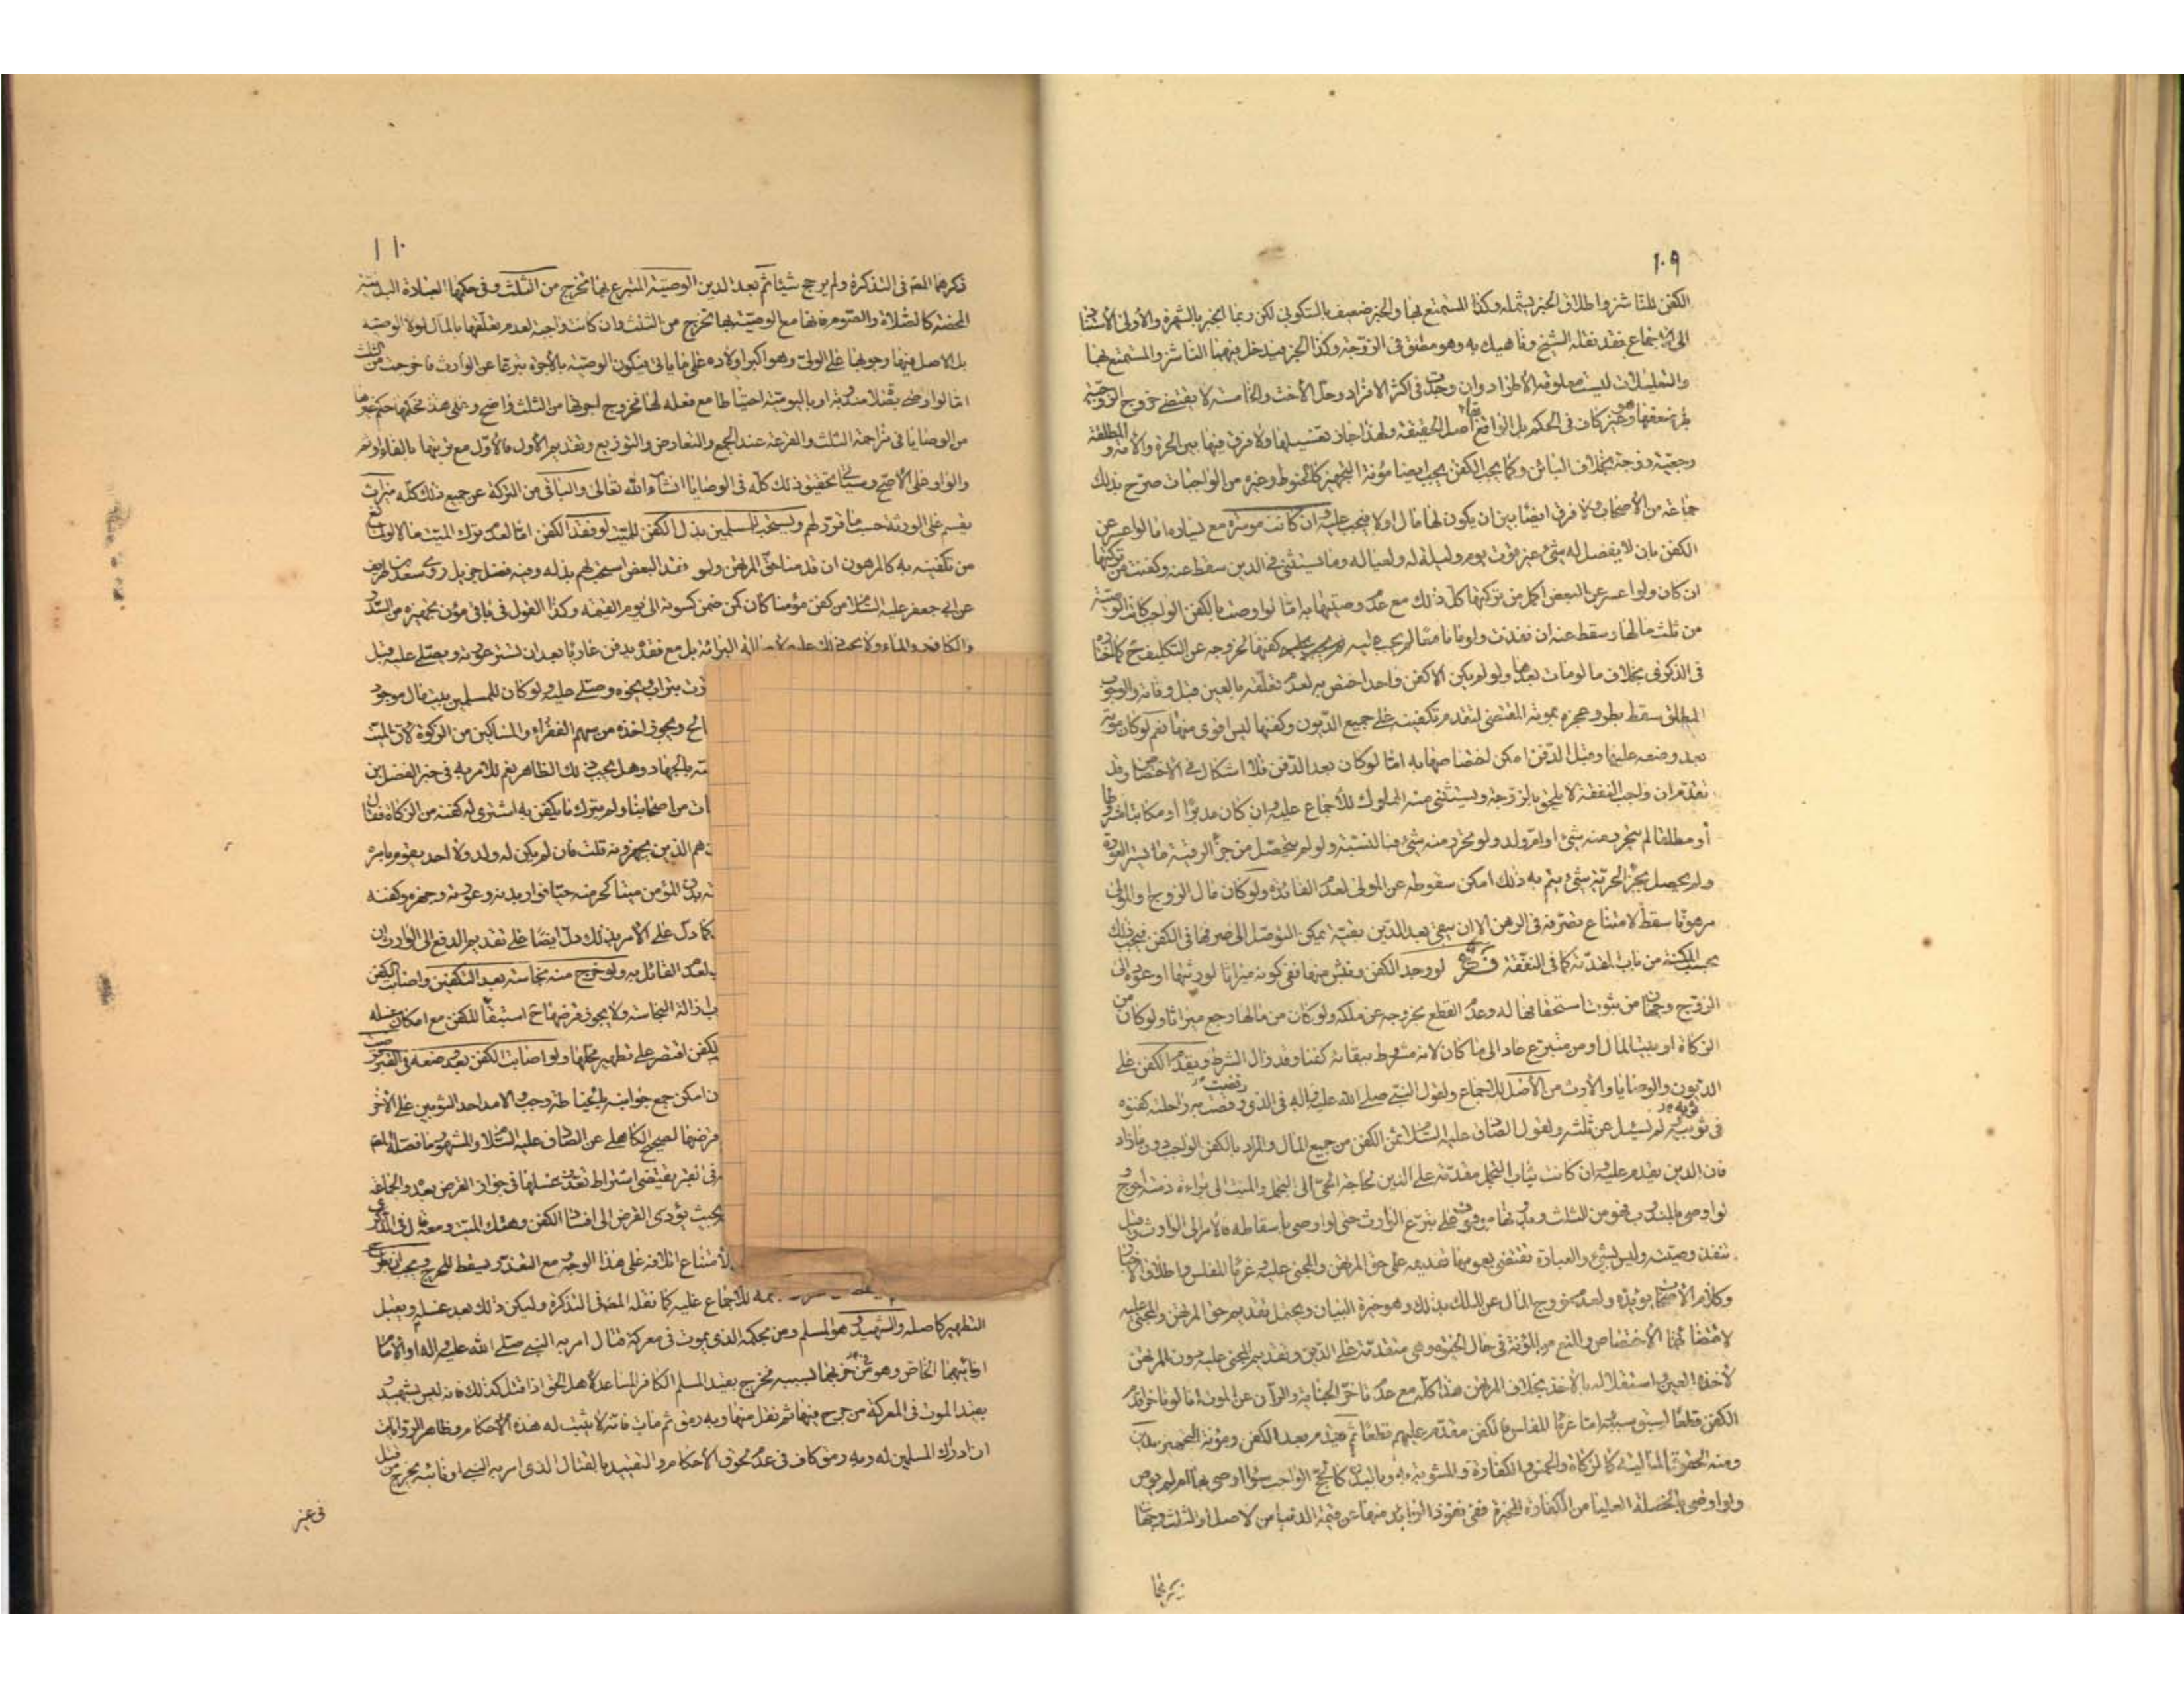 ١٠٩
الكفن للناشز واطلاق الخبر يشمله وكذا المستمتع بها والخبر ضعيف بالسكوني لكن ربما انجبر بالشهرة والاولى الاستناد
الى الاجماع فقد نقله الشيخ وناهيك به وهو مطلق في الزوجة وكذا الخبر فيدخل فيهما الناشز والمستمتع بها
والتعليلات ليست معلومة الاطراد وان وجدت في اكثر الافراد وحل الاخت والخامسة لا يقتضي خروج الزوجية
لم يضعفها وغير كاف في الحكم بل الواقع بقاء اصل الحقيقة ولهذا جاز تغسيلها ولا فرق فيها بين الحرة والامة والمطلقة
رجعية زوجة بخلاف البائن وكما يجب الكفن يجب ايضا مؤنة التجهيز كالحنوط وغيره من الواجبات صرح بذلك
جماعة من الاصحاب ولا فرق ايضا بين ان يكون لها مال او لا فيجب عليه وان كانت موسرة مع يساره اما لو اعسر عن
الكفن بان لا يفضل له شيء عن قوت يوم وليلة له ولعياله وما يستثنى في الدين سقط عنه وكفنت من تركتها
ان كان ولو اعسر عن البعض اكمل من تركتها كل ذلك مع عدم وصيتها به اما لو اوصت بالكفن الواجب كانت الوصية
من ثلث مالها وسقط عنه ان نفذت ولو ماتا معا لم يجب عليه كفنها لخروجه عن التكليف ح كما اختاره
في الذكرى بخلاف ما لو مات بعدها ولو لم يكن الا كفن واحد اختص به لعدم تعلقه بالعين قبل وفاته والوجوب
المطلق سقط بطرو عجزه بموته المقتضي لتقدم تكفينه على جميع الديون وكفنها ليس اقوى منها نعم لو كان موته
بعد وضعه عليها وقبل الدفن امكن اختصاصها به اما لو كان بعد الدفن فلا اشكال في الاختصاص وقد
تقدم ان واجب النفقة لا يلحق بالزوجة ويستثنى منه المملوك للاجماع عليه وان كان مدبرا او مكاتبا مشروطا
أو مطلقا لم يتحرر منه شيء او ام ولد ولو تحرر منه شيء فبالنسبة ولو لم يتحصل من جزء الرقية ما يستر العورة
ولم يحصل بجزء الحرية شيء يتم به ذلك امكن سقوطه عن المولى لعدم الفائدة ولو كان مال الزوج والمولى
مرهونا سقط لامتناع تصرفه في الرهن الا ان يبقى بعد الدين بقية يمكن التوصل الى صرفها في الكفن فيجب ذلك
بحسب المكنة من باب المقدمة كما في النفقة فرع لو وجد الكفن ونبش منها ففي كونه ميراثا لورثتها او عوده الى
الزوج وجهان من ثبوت استحقاقها له وعدم القطع بخروجه عن ملكه ولو كان من مالها رجع ميراثا ولو كان من
الزكاة او بيت المال او من متبرع عاد الى ما كان لانه مشروط ببقائه كفنا وقد زال الشرط ويقدم الكفن على
الديون والوصايا والارث من الاصل للاجماع ولقول النبي صلى الله عليه واله في الذي وقصت به راحلته كفنوه
في ثوبيه ولم يسئل عن ثلثه ولقول الصادق عليه السلام ثمن الكفن من جميع المال والمراد بالكفن الواجب دون ما زاد
فان الدين يقدم عليه وان كانت ثياب التجمل مقدمة على الدين لحاجة الحي الى التجمل والميت الى براءة ذمته احوج
لو اوصى بالندب فهو من الثلث وبدونها موقوف على تبرع الوارث حتى لو اوصى باسقاطه فالامر الى الوارث وقيل
تنفذ وصيته وليس بشيء والعبارة تقتضي بعمومها تقديمه على حق المرتهن والمجني عليه وغرماء المفلس واطلاق الاخبار
وكلام الاصحاب يؤيده ولعدم خروج المال عن الملك بذلك وهو خيرة البيان ويحتمل تقديم حق المرتهن والمجني عليه
لاقتضائهما الاختصاص والمنع من المؤنة في حال الحيوة وهي متقدمة على الدين وتقديم المجني عليه دون المرتهن
لأخذه العين واستقلاله بالاخذ بخلاف المرتهن هذا كله مع عدم تاخر الجناية والرهن عن الموت اما لو تاخرا قدم
الكفن قطعا لسبق سببه اما غرماء المفلس فالكفن مقدم عليهم قطعا ثم يقدم بعد الكفن ومؤنة التجهيز الدين
ومنه الحقوق المالية كالزكاة والخمس والكفارة والمشوبة به وبالبدن كالحج الواجب سواء اوصى بها ام لم يوص
ولو اوصى بالخصلة العليا من الكفارة المخيرة ففي نفوذ الزايد منها عن قيمة الدنيا من الاصل او الثلث وجهان
١١٠
ذكرهما المصّ في التذكرة ولم يرجح شيئا ثم بعد الدين الوصية المتبرع بها تخرج من الثلث وفي حكمها العبادة البدنية
المحضة كالصلاة والصوم فانها مع الوصية بها تخرج من الثلث وان كانت واجبة لعدم تعلقها بالمال لولا الوصية
بل الاصل فيها وجوبها على الولي وهو اكبر اولاده على ما ياتي فيكون الوصية بالاجرة تبرعا عن الوارث فاخرجت من الثلث
امّا لو اوصى بفعل مندوبة او باليومية احتياطا مع فعله لها فخروج اجرتها من الثلث واضح وعلى هذا فحكمها حكم غيرها
من الوصايا في مزاحمة الثلث والقرعة عند الجمع والتعارض والتوزيع وتقديم الاول فالاول مع ترتيبها بالفاء وثم
والواو على الاصح وسياتي تحقيق ذلك كله في الوصايا انشاء الله تعالى والباقي من التركة عن جميع ذلك كله ميراث
يقسم على الورثة حسب ما قرر لهم ويستحب للمسلمين بذل الكفن للميت لو فقد الكفن اما لعدم ترك الميت مالا او لمانع
من تكفينه به كالمرهون ان قدمنا حق المرتهن ولو فقد البعض استحب لهم بذله وفيه فضل جزيل روى سعد بن طريف
عن ابي جعفر عليه السلام من كفن مؤمنا كان كمن ضمن كسوته الى يوم القيمة وكذا القول في باقي مؤن تجهيزه من السدر
والكافور والماء ولا يجب ذلك عليهم البرائة بل مع فقده يدفن عاريا بعد ان تستر عورته ويصلى عليه قبل
بتراب ونحوه وصلى عليه ولو كان للمسلمين بيت مال موجود
ويجوز اخذه من سهم الفقراء والمساكين من الزكوة لان الميت
بالجهاد وهل يجب ذلك الظاهر نعم للامر به في خبر الفضل بن
من اصحابنا ولم يترك ما يكفن به اشتري له كفنه من الزكاة فقال
هم الذين يجهزونه قلت فان لم يكن له ولد ولا احد يقوم بامره
بدن المؤمن ميتا كحرمته حيا فوار بدنه وعورته وجهزه وكفنه
كما دل على الامر بذلك دل ايضا على تقديم الدفع الى الوارث ان
لعدم القائل به ولو خرج منه نجاسة بعد التكفين واصاب الكفن
ازالة النجاسة ولا يجوز قرضها ح استبقاء للكفن مع امكان غسله
الكفن اقتصر على تطهير محلها ولو اصابت الكفن بعد وضعه في القبر قرضت
امكن جمع جوانبه بالخياطة وجب والا مد احد الثوبين على الآخر
قرضها لصحيح الكاهلي عن الصادق عليه السلام والمشهور ما فصله المصّ
يقتضي اشتراط تعذر غسلها في جواز القرض بعده والجماعة
بحيث يؤدي القرض الى افساد الكفن وهتك الميت ومعه قال في الذكرى
لامتناع اتلافه على هذا الوجه مع التعذر يسقط للحرج ويجب ان يطرح
للاجماع عليه كما نقله المصّ في التذكرة وليكن ذلك بعد غسله وقبل
التطهير كاصله والشهيد هو المسلم ومن بحكمه الذي يموت في معركة قتال امر به النبي صلى الله عليه واله او الامام
او نائبهما الخاص وهو من حزبهما بسببه فخرج بقيد المسلم الكافر المساعد لاهل الحق اذا قتل كذلك فانه ليس بشهيد
بقيد الموت في المعركة من جرح فيها ثم نقل منها وبه رمق ثم مات فانه لا يثبت له هذه الاحكام وظاهر الروايات
ان ادراك المسلمين له وبه رمق كاف في عدم لحوق الاحكام والتقييد بالقتال الذي امر به النبي او نائبه يخرج من قتل
في غير